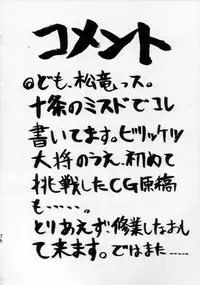 コメント
@ども、松竜っス。
十条のミスドでコレ
書いてます。ビリッケツ
大将のうえ、初めて
挑戦したCG原稿
も‥‥‥。
とりあえず修業しなおし
て来ます。ではまた‥‥‥